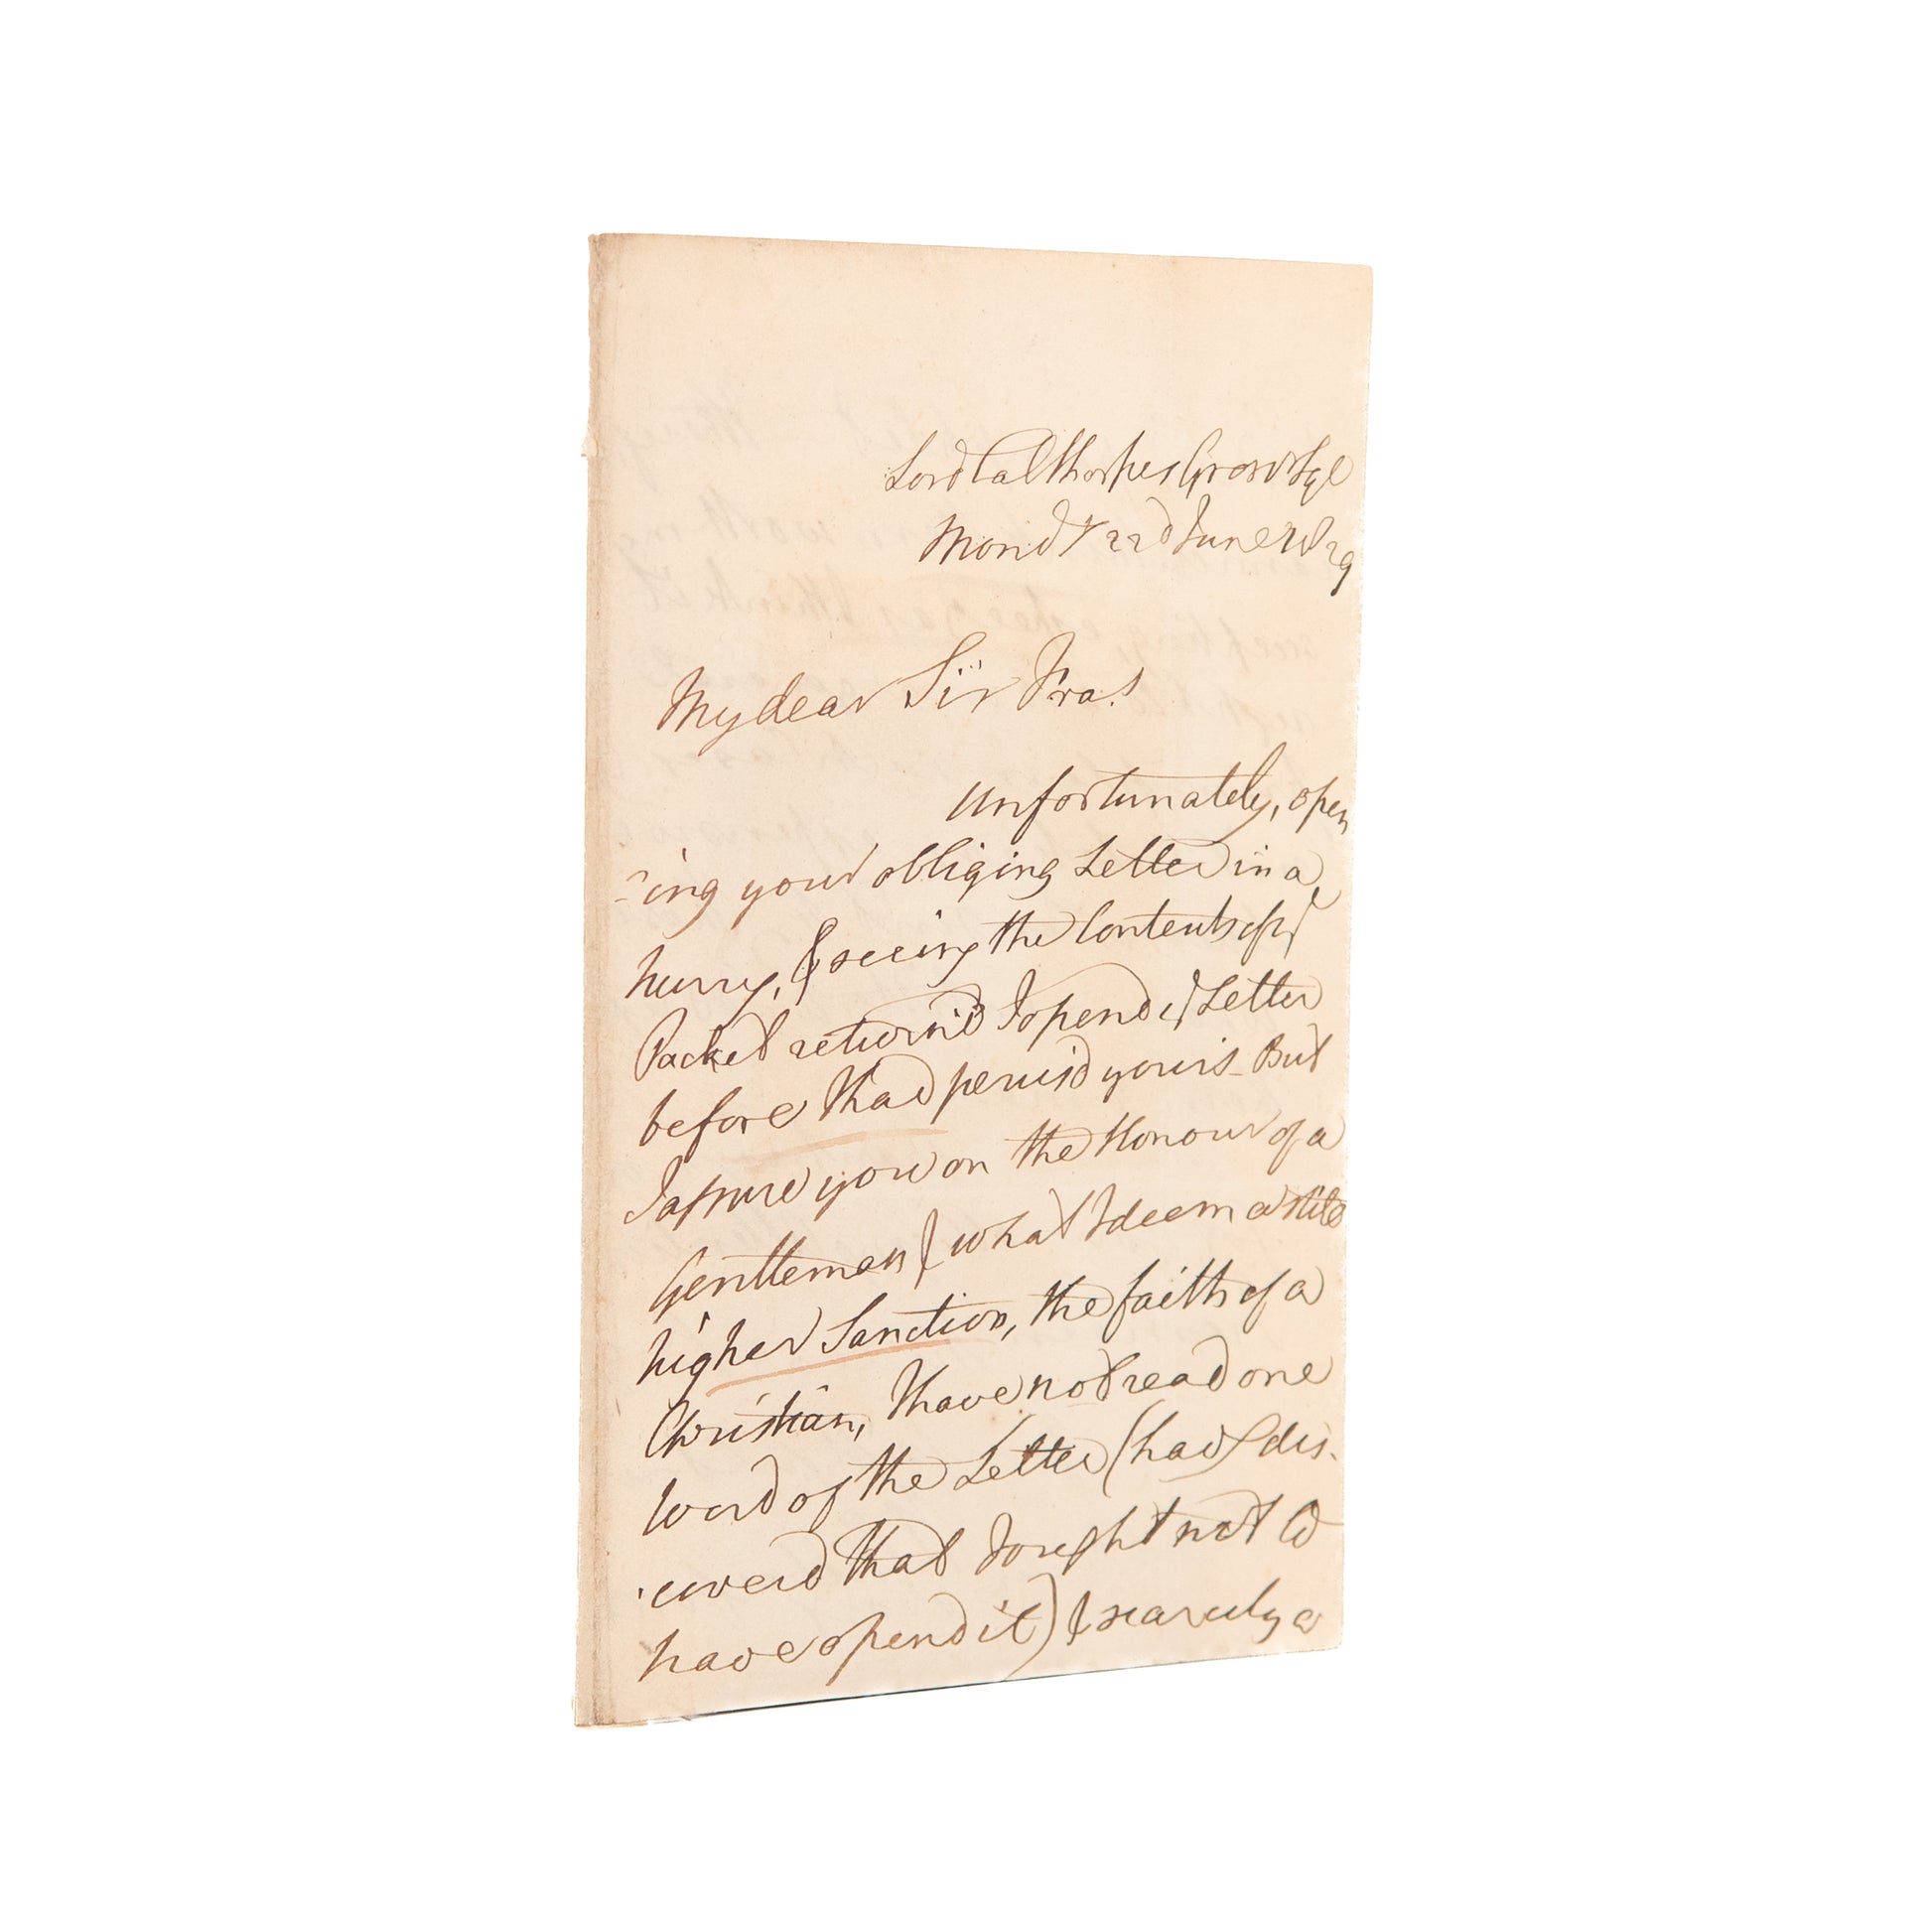 Lord Calthorpes Grosvr Sqe
Mondy 22d June 1829
My dear Sir Fras
Unfortunately, open
-ing your obliging Letter in a
hurry, & seeing the Contents of ye
Packet return'd I opend ye Letter
before I had perus'd yours - But
I assure you on the Honour of a
Gentleman & what I deem a still
higher Sanction, the faith of a
Christian, I have not read one
word of the Letter (had I dis-
-coverd that I ought not to
have opend it) & scarcely a